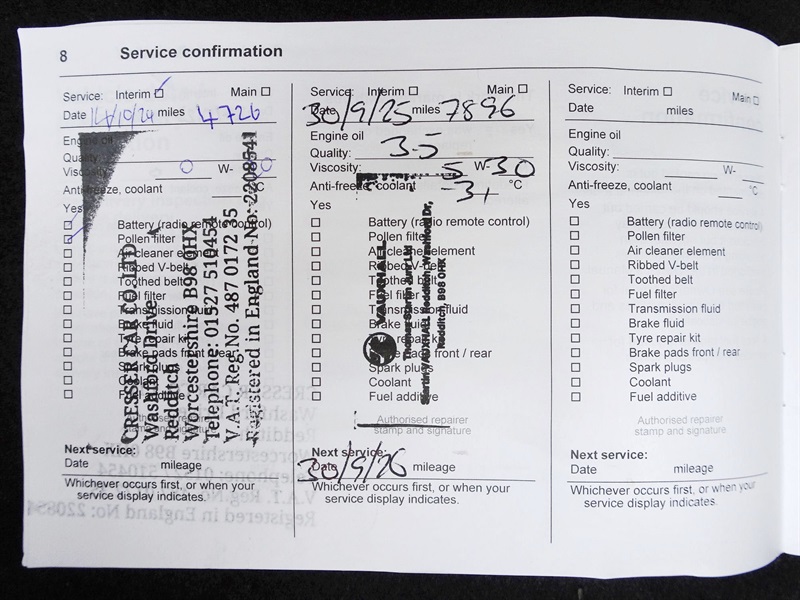 8 Service confirmation
Service: Interim Main
Date 14/10/24 miles 4726
Engine oil
Quality:
Viscosity: 0 W-
Anti-freeze, coolant °C
Yes
Battery (radio remote control)
Pollen filter
Air cleaner element
Ribbed V-belt
Toothed belt
Fuel filter
Transmission fluid
Brake fluid
Tyre repair kit
Brake pads front / rear
Spark plugs
Coolant
Fuel additive
Authorised repairer
stamp and signature
CRESSER CAR CO LTD
Washford Drive
Redditch
Worcestershire B98 0HX
Telephone: 01527 510454
V.A.T. Reg No. 487 0172 35
Registered in England No: 2208541
Next service:
Date mileage
Whichever occurs first, or when your
service display indicates.
Service: Interim Main
Date 30/9/25 miles 7896
Engine oil
Quality:
Viscosity: 5 W-30
Anti-freeze, coolant °C
Yes
Battery (radio remote control)
Pollen filter
Air cleaner element
Ribbed V-belt
Toothed belt
Fuel filter
Transmission fluid
Brake fluid
Tyre repair kit
Brake pads front / rear
Spark plugs
Coolant
Fuel additive
Authorised repairer
stamp and signature
VAUXHALL
Redditch, B98 0HX
Next service:
Date 30/9/26 mileage
Whichever occurs first, or when your
service display indicates.
Service: Interim Main
Date miles
Engine oil
Quality:
Viscosity: W-
Anti-freeze, coolant °C
Yes
Battery (radio remote control)
Pollen filter
Air cleaner element
Ribbed V-belt
Toothed belt
Fuel filter
Transmission fluid
Brake fluid
Tyre repair kit
Brake pads front / rear
Spark plugs
Coolant
Fuel additive
Authorised repairer
stamp and signature
Next service:
Date mileage
Whichever occurs first, or when your
service display indicates.